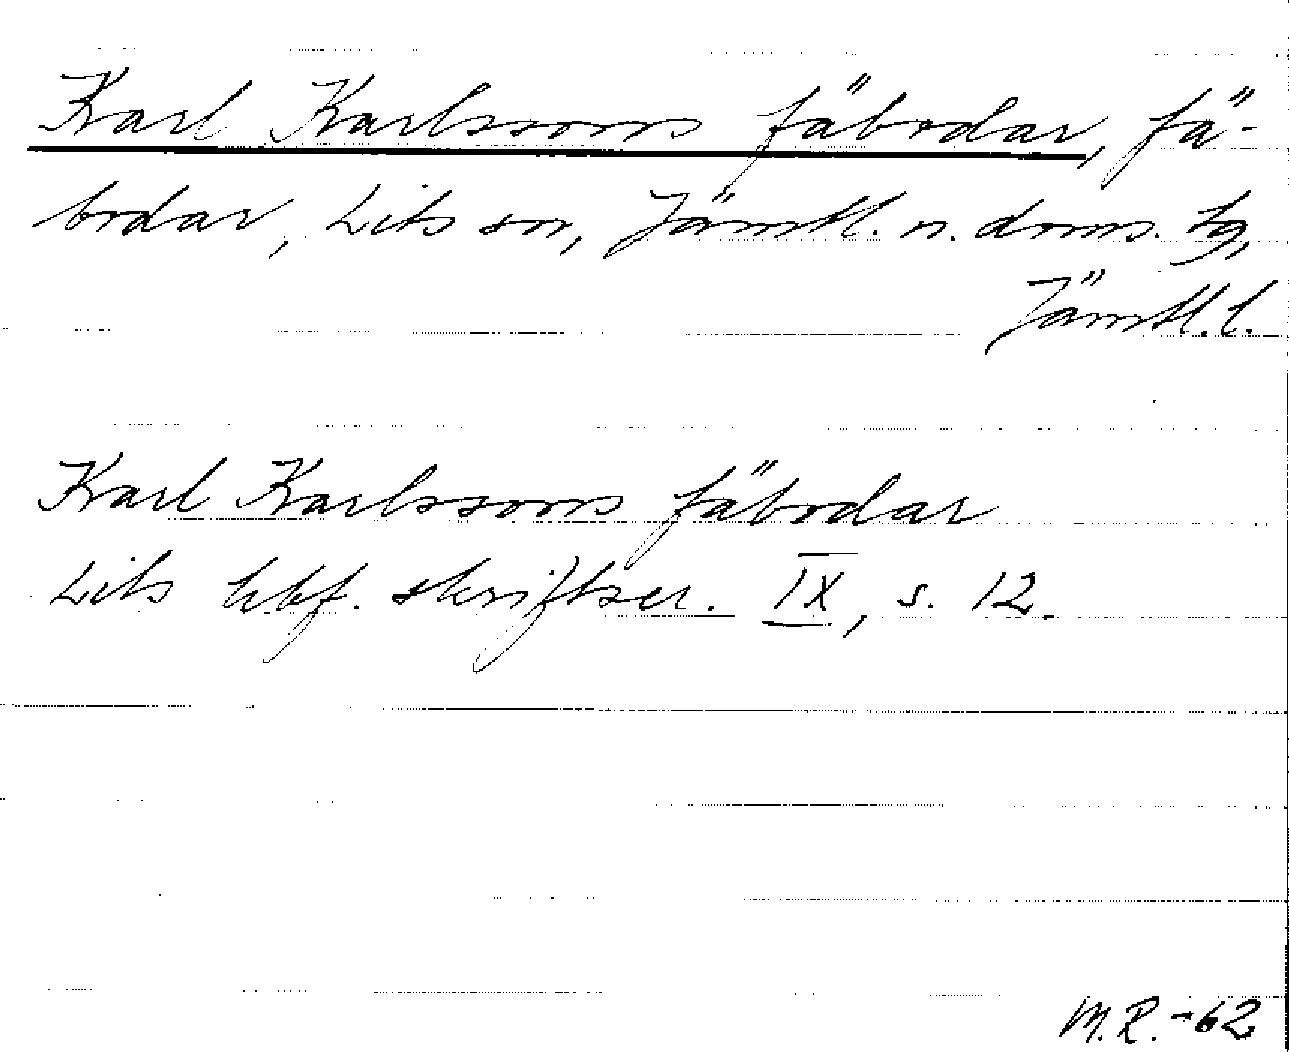 Karl Karlssons fäbodar, fä-
bodar, Lits sn, Jämtl. n. doms. tg,
Jämtl. l.
Karl Karlssons fäbodar
Lits hbf. skriftser. IX, s. 12.
M.R.-62